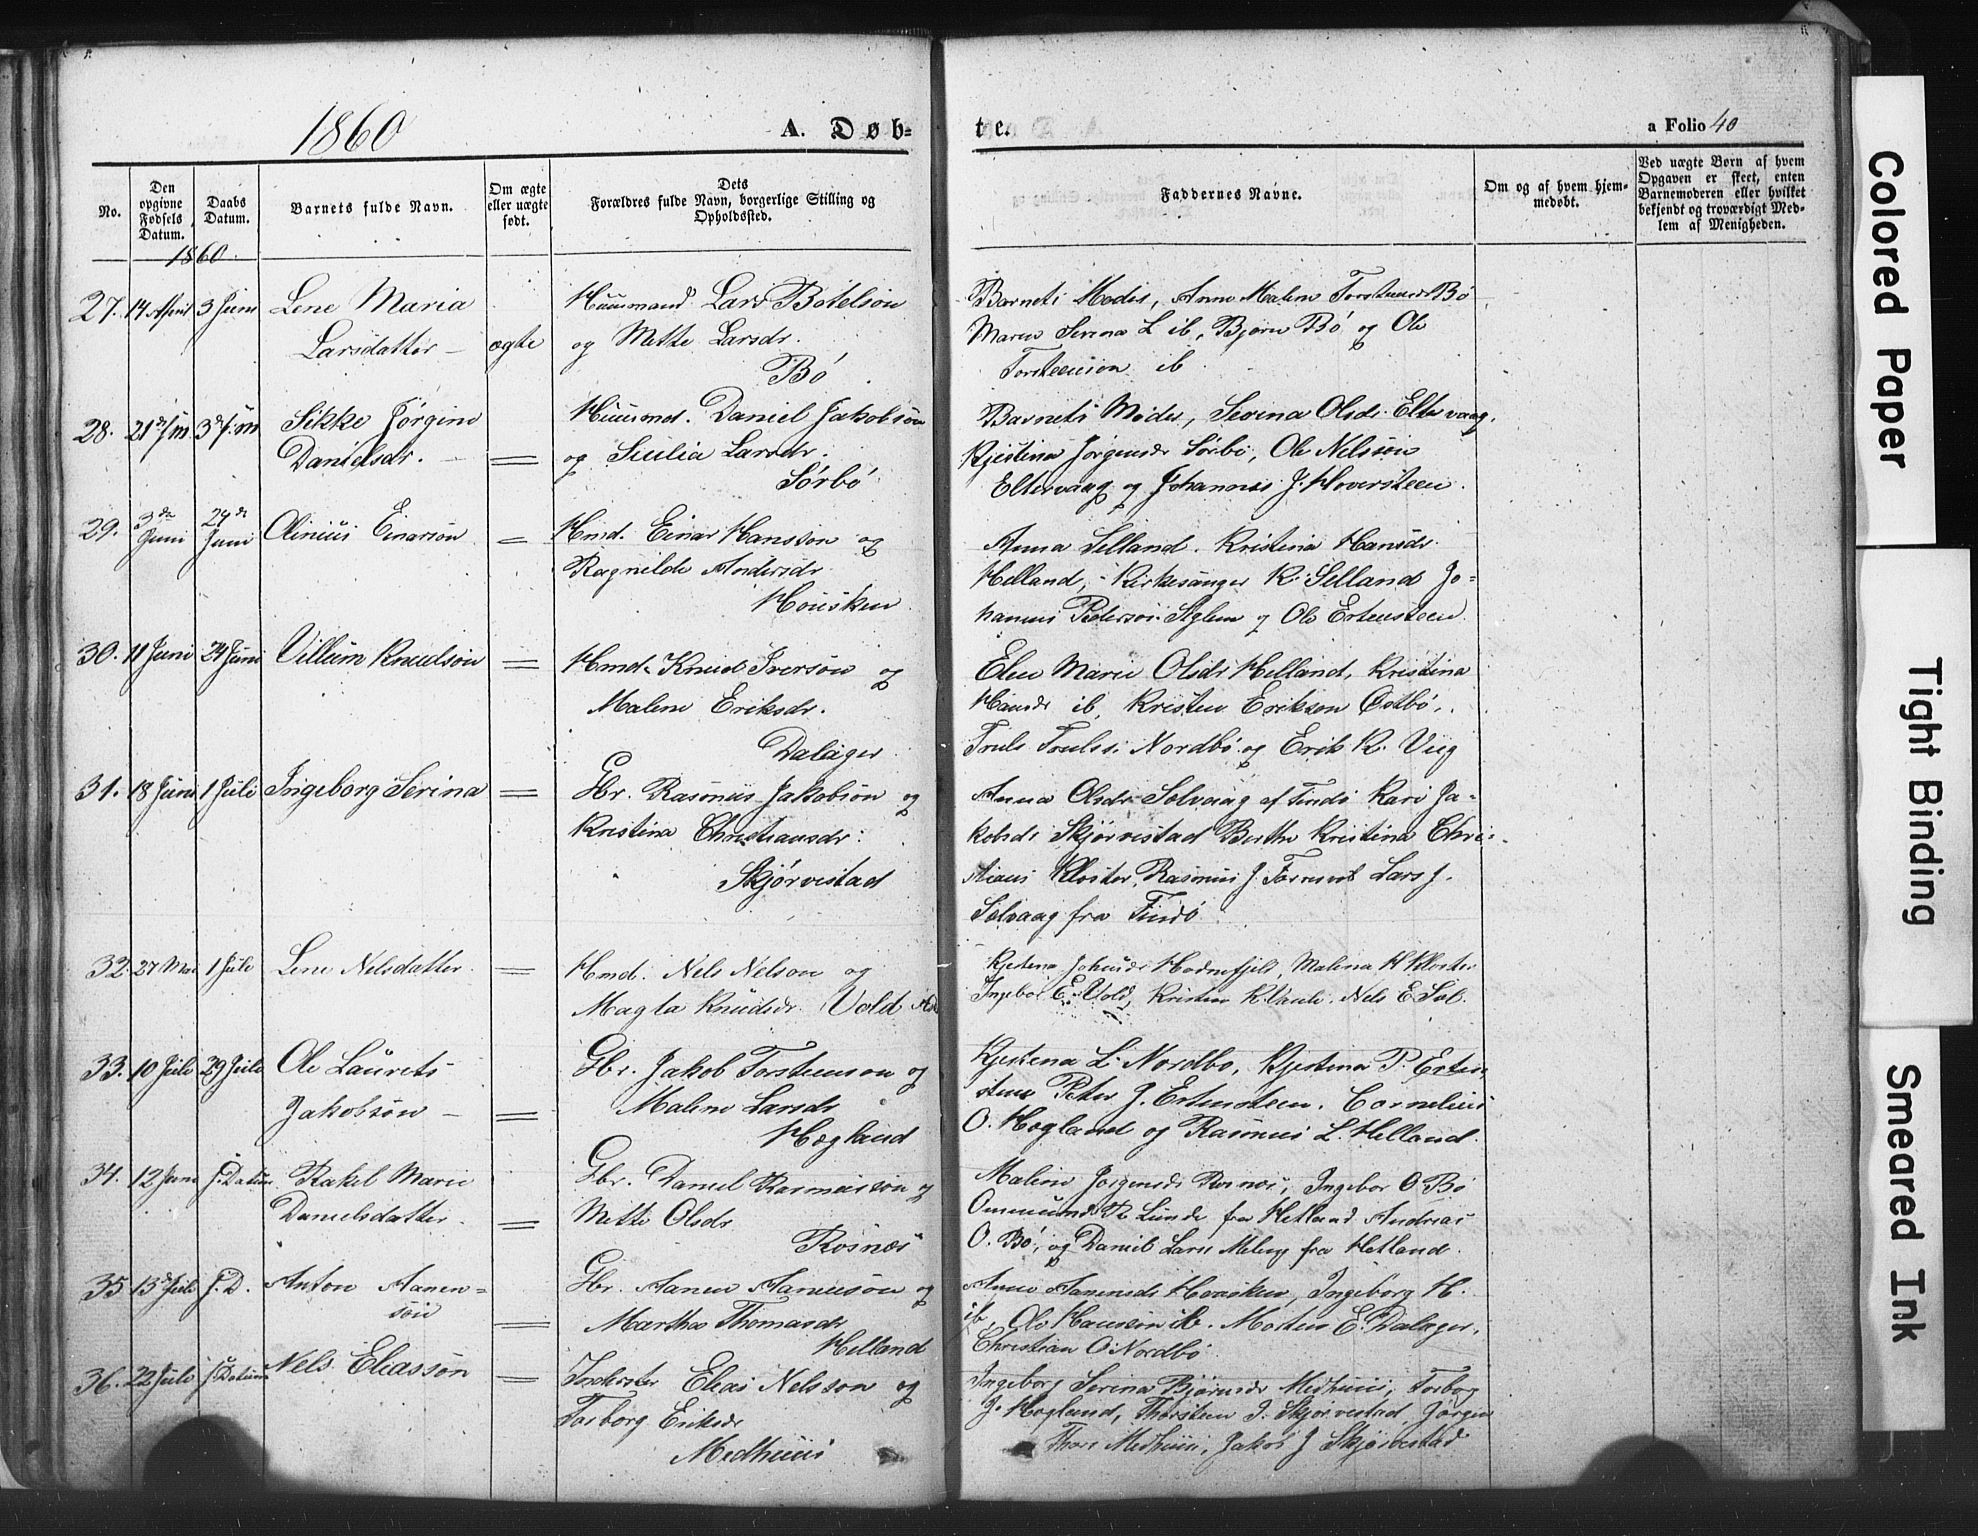 1860
A. Døb-
te.
a Folio 40
No.
Den opgivne Fødsels Datum.
Daabs Datum.
Barnets fulde Navn.
Om ægte eller uægte født.
Dets
Forældres fulde Navn, borgerlige Stilling og
Opholdssted.
Faddernes Navne.
Om og af hvem hjem-
medøbt.
Ved uægte Børn af hvem
Opgaven er skeet, enten
Barnemoderen eller hvilket
bekjendt og troværdigt Med-
lem af Menigheden.
1860.
27. 14 April 3 Juni Lene Maria
Larsdatter - ægte
Huusmand Lars Botelson
og Mette Larsdr.
Bö
Barnets Moder, Anne Malene Bö
Maren Serina L ib, Björn Bö og Ole
Torsteenson ib.
28. Sikke Jörgine
Danielsdr.
Huusmd. Daniel Jakobson
og Larsdr.
Sörbö
Barnets Moder, Serina Olsdr. Eltervaag,
Kjestina Jörgensdr Sörbö, Ole Nelsson
Eltervaag og Johannes J. Hoversteen.
29. 3de Juni 24de Juni Olinius Einarson
Hmd. Einar Hansson og
Ragnilde Andersdr.
Housken
Anna Selland. Kristina Hansdr.
Helland, Kirkesanger K. Selland Jo-
hannes og Ole Ertensteen.
30. 11 Juni 24 Juni Villum Knudson
Hmd. Knud Iverson og
Malene Eriksdr.
Dalager
Elen Marie Olsdr Helland, Kristina
Hansdr ib, Kristen Erikson Östbö,
Truls Nordbö og Erik K. Viig
31. 18 Juni 1 Juli Ingeborg Serina
Gbr. Rasmus Jakobson og
Kristina Christiansdr.
Skjörvestad
Anna Olsdr Solvaag af Findö Kari Ja-
kobsdr Skjörvestad Berthe Kristina Chri-
Kloster, Rasmus J. Lars J.
Solvaag fra Findö
32. 27 Mai 1 Juli Lene Nelsdatter
Hmd. Nels Nelson og
Magla Knudsdr. Vold
Kjestena Hodnefjeld, Malena H Kloster
Ingebor E. Vold, Kristen K. Nels E.
33. 10 Juli 29 Juli Ole Laurets
Jakobson -
Gbr. Jakob Torsteenson og
Malene Larsdr
Hægland
Kjestena L. Nordbö, Kjestena P. Erten-
steen Peter J. Ertensteen. Cornelius
O. Hogland og Rasmus L. Helland.
34. 12 Juni s. Datum Rakel Marie
Danielsdatter.
Gbr. Daniel Rasmusson og
Mette Olsdr
Rosnæs
Malene Jörgensdr Ingebor O Bö
Ommund R Lunde fra Hetland Andreas
O. Bö, og Daniel Lars Meling fra Hetland.
35 13 Juli s. D. Anton Aanen-
son
Gbr. Aanen Aanenson og
Marthe Thomasdr
Helland
Anne Aanensdr Housken, Ingeborg H.
ib, Ole Hansson ib. Morten E. Dalager,
Christian O. Nordbö
36. 22 Juli s. Datum Nels Eliasson
Inderster Elias Nelsson og
Torborg Eriksdr
Medhuus
Ingeborg Serina Björnsdr Medhuus, Torborg
J. Hogland, Thorsteen J. Skjörvestad, Jörgen
Thors Medhuus, Jakob J Skjörvestad
Colored Paper
Tight Binding
Smeared Ink